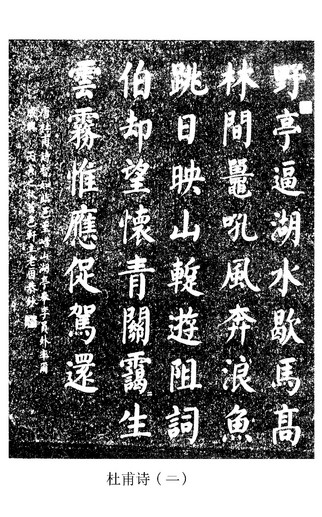 野亭逼湖水歇馬高
林間鼉吼風奔浪魚
跳日映山暫遊阻詞
伯却望懷青關靄〻生
雲霧惟應促駕還
杜甫诗（二）